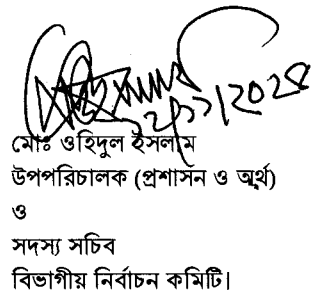 মোঃ ওহিদুল ইসলাম
উপপরিচালক (প্রশাসন ও অর্থ)
ও
সদস্য সচিব
বিভাগীয় নির্বাচন কমিটি।